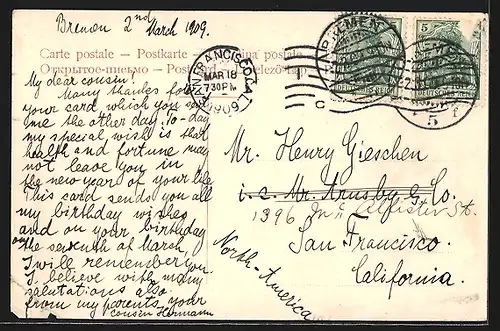 Bremen 2nd March 1909.
Carte postale — Postkarte —
Открытое письмо —
My dear cousin!
Many thanks for
your card, which you
me the other day. To-day
my special wish is that
health and fortune may
not leave you in
the new year of your life
This card sends you all
my birthday wishes
and on your birthday
on the seventh of March
I will remember you.
I believe with many
salutations also
from my parents your
cousin Hermann
FRANCISCO
MAR 18
7 30 PM
1909
BREMEN
DEUTSCHES REICH
5
BREMEN
DEUTSCHES REICH
5
Mr. Henry Gieschen
i. c. Mr. & Co.
1396 St.
San Francisco.
California.
North-America